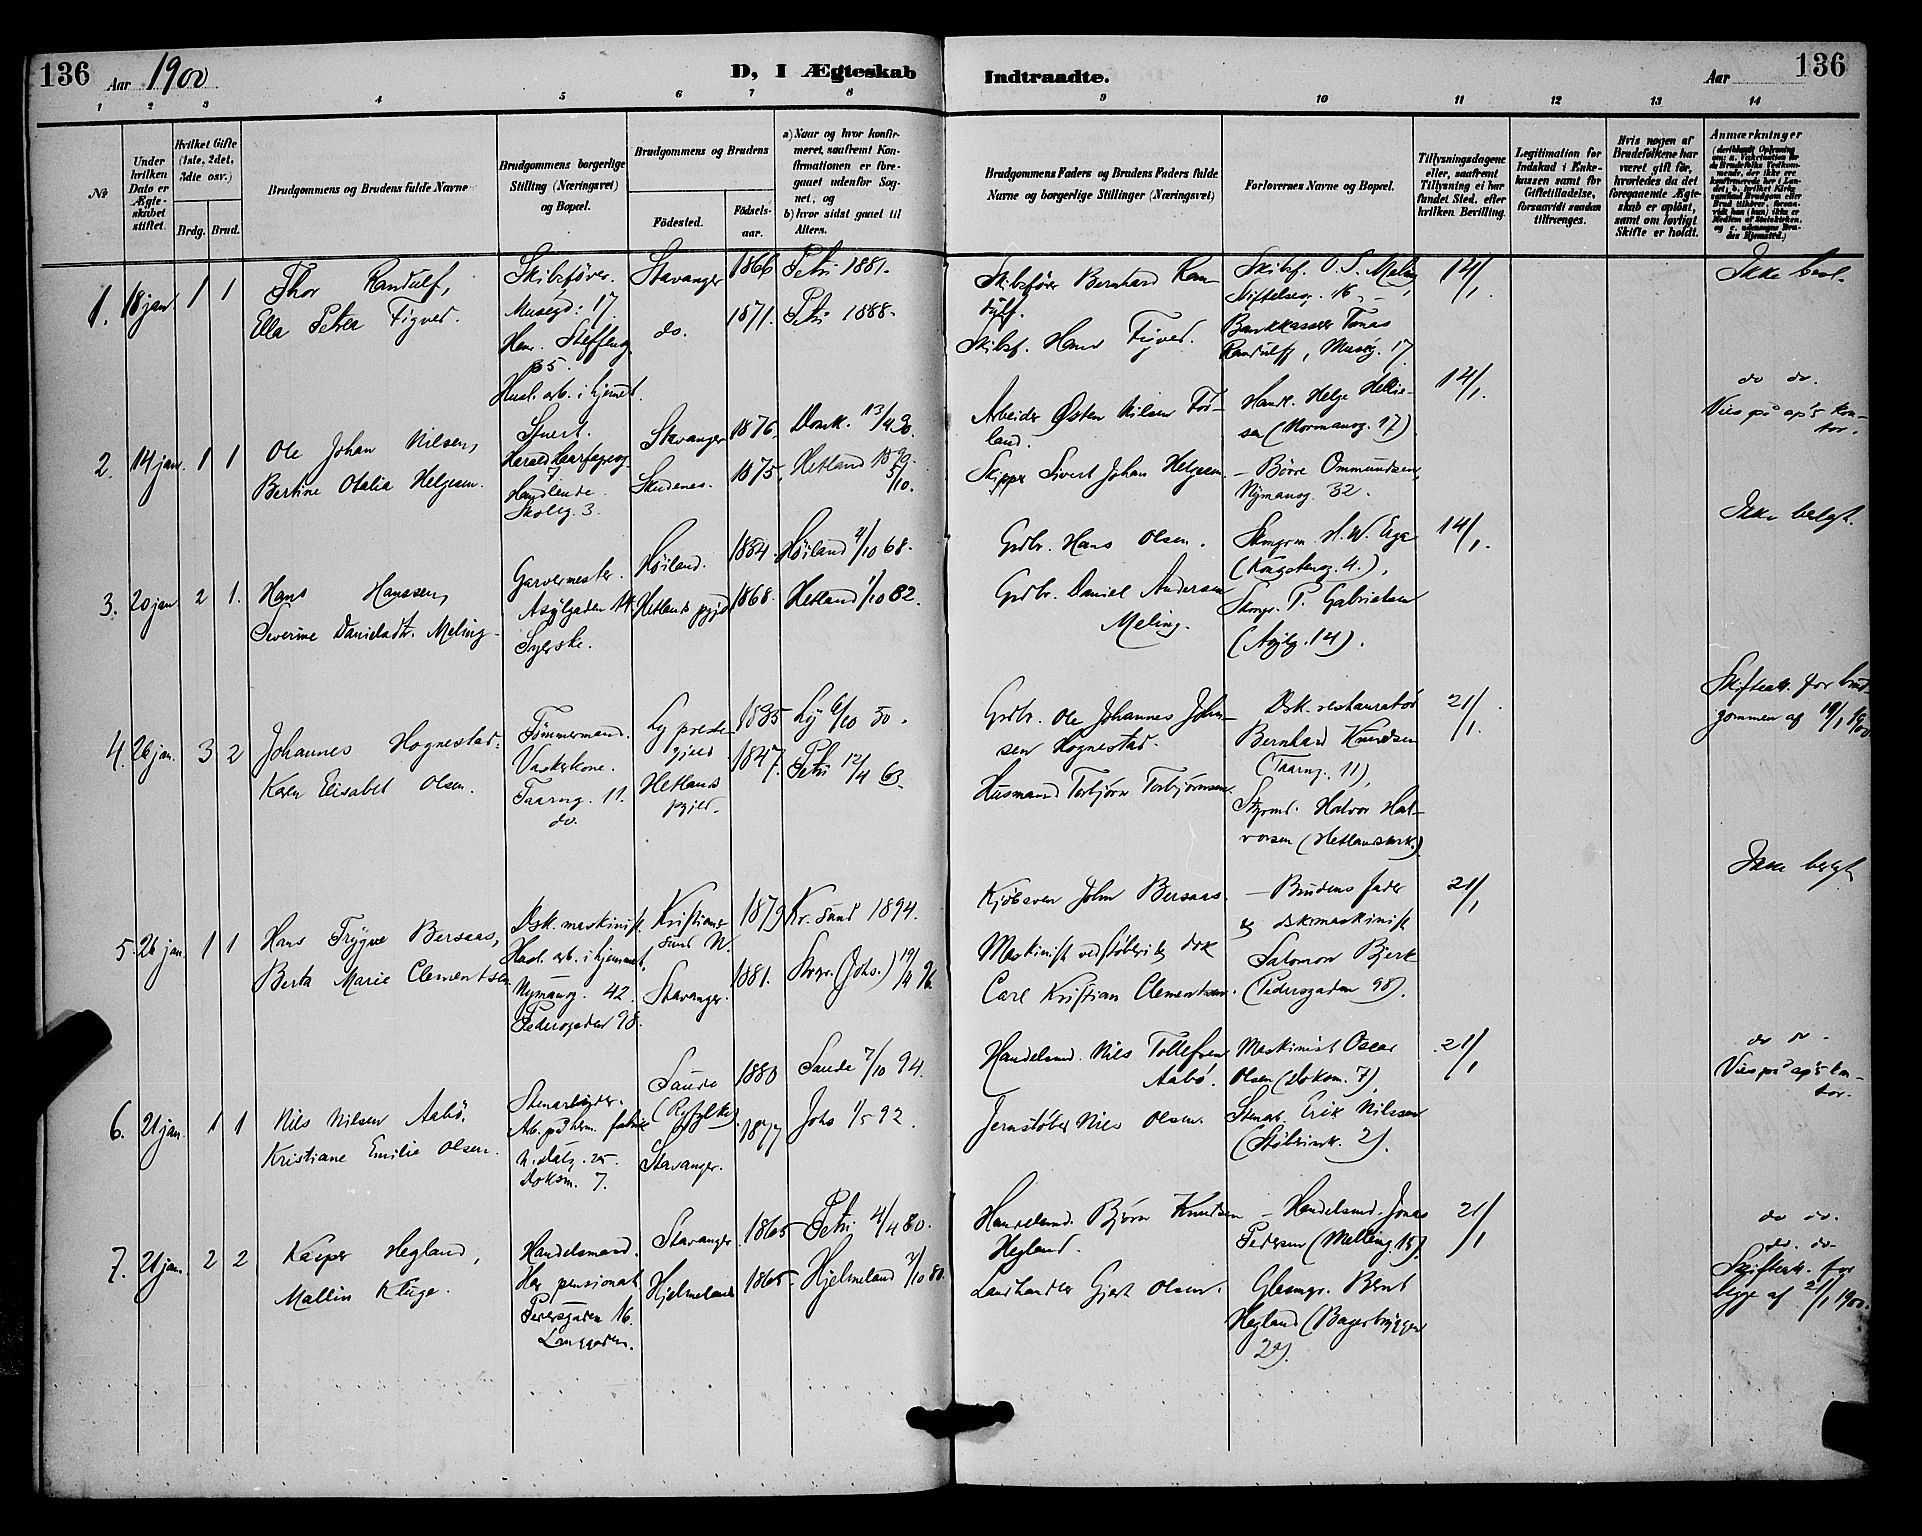 136 Aar 1900 D, I Ægteskab Indtraadte. Aar 136
1 2 3 4 5 6 7 8 9 10 11 12 13 14
No
Under hvilken Dato er Ægteskabet stiftet.
Hvilket Gifte (1ste, 2det, 3die osv.)
Brdg. Brud.
Brudgommens og Brudens fulde Navne
Brudgommens borgerlige Stilling (Næringsvei) og Bopæl.
Brudgommens og Brudens
Fødested.
Fødselsaar.
a) Naar og hvor konfirmeret, saafremt Konfirmationen er foregaaet udenfor Sognet, og
b) hvor sidst gaaet til Alters.
Brudgommens Faders og Brudens Faders fulde Navne og borgerlige Stillinger (Næringsvei)
Forlovernes Navne og Bopæl.
Tillysningsdagene eller, saafremt Tillysning ei har fundet Sted, efter hvilken Bevilling.
Legitimation for Indskud i Enkekassen samt for Giftetilladelse, forsaavidt saadan tiltrænges.
Hvis nogen af Brudefolkene har været gift, hvorledes da det foregaaende Ægteskab er opløst, samt om lovligt Skifte er holdt.
Anmærkninger
1. 18 jan 1 1
Thor Randulf,
Ella Petrea Figved.
Skibsfører.
Musegd: 17
Hen. Steffensg
35.
Husl. arb. i hjemmet.
Stavanger 1866 Petri 1881.
do. 1871. Petri 1888.
Skibsfører Bernhard Ran-
dulf.
Skibsf. Hans Figved.
Skibsf. O. S. Meling
Stiftelseg. 16,
Bankkasserer Tønas
Randulff, Museg. 17
14/1.
Ikke besl.
2. 14 jan. 1 1
Ole Johan Nilsen,
Bertine Otalia Helgesen.
Stuert.
Harald Haarfagresg
7
Handlende.
Skoleg. 3.
Stavanger 1876. Domk. 13/4 90.
Skudenes. 1875. Hetland 1890
5/10.
Arbeider Østen Nilsen Tor-
land.
Skipper Sivert Johan Helgesen
Handl. Helge Hellie-
sen (Normanng. 17)
- Børre Ommundsen,
Nymansg. 32.
14/1.
do do.
Vies på sp's kon-
tor.
3. 20 jan 2 1.
Hans Hanssen,
Severine Danielsdtr. Meling
Garvermester.
Asylgaden 14
Syerske.
Høiland. 1834. Høiland 2/10 68.
Hetlands pgjd 1868. Hetland 1/10 82.
Grdbr. Hans Olsen.
Grdbr. Daniel Andersen
Meling.
Skmgrm H. W. Ege
(Kongsteng. 4.),
Skmgr. P. Gabrielsen
(Asylg. 14).
14/1.
Ikke belagt.
4. 26 jan. 3 2
Johannes Hognestad.
Karen Elisabet Olsen.
Tømmermand.
Vaskerkone.
Taarng. 11.
do.
Ly præste-
gjeld 1835 Ly 6/10 50.
Hetlands
pgjeld. 1847. Petri 12/4 63.
Grdbr. Ole Johannes John-
sen Hognestad.
Husmand Torbjørn Torbjørnsen.
Dsk. restauratør
Bernhard Knudsen
(Taarng. 11),
Styrmd. Halvor Hal-
vorsen (Hetlandsmrk.)
21/1.
Skifteatt. for brud-
gommen af 19/1 1900
5. 26 jan. 1 1
Hans Trygve Bersaas,
Berta Marie Clementsen
Dsk. maskinist.
Husl. arb. i hjemmet.
Nymansg. 42.
Pedersgaden 98.
Kristians-
sund N. 1879 Kr.sund 1894.
Stavanger. 1881. Stvgr. (Johs.) 19/4 96.
Kjøbmann John Bersaas.
Maskinist ved Støberi & dok
Carl Kristian Clementsen.
- Brudens fader
og dskmaskinist
Salomon Bjerk
(Pedersgaden 98).
21/1
Ikke belagt
6. 21 jan. 1 1
Nils Nilsen Aabø.
Kristiane Emilie Olsen.
Stenarbeider.
Arb. på herm. fabrik
N. dalg. 25.
Doksm. 7.
Saude
(Ryfylke) 1880 Saude 7/10 94.
Stavanger. 1877 Johs 1/5 92.
Handelsmd. Nils Tollefsen
Aabø.
Jernstøber Nils Olsen.
Maskinist Oscar
Olsen (Doksm. 7),
Stenarb. Erik Nilssen
(Støberimk. 2).
21/1
do do.
Vies på sp's kon-
tor.
7. 21 jan. 2 2
Kasper Hegland,
Mallin Kluge.
Handelsmand.
Har pensionat
Pedersgaden 16.
Langgaden.
Stavanger 1865 Petri 4/4 80.
Hjelmeland 1865 Hjelmeland 3/10 80.
Handelsmd. Bjørn Knudsen
Hegland.
Landhandler Gjert Olsen.
- Handelsmd. Jonas
Pedersen (Melling. 15).
Glasmgr. Bent
Hegland (Bagerbryggen
22).
21/1
do do.
do. do.
Skifteatt. for
begge af 21/1 1900.